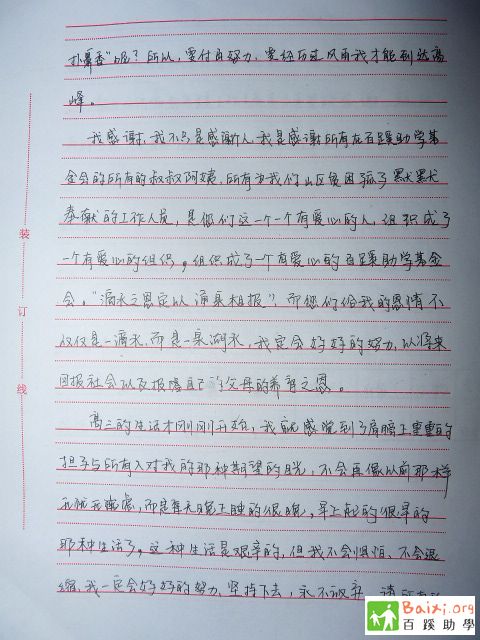 扑鼻香"呢？所以，要付出努力，要经历过风雨我才能到达高
峰。
我感谢，我不只是感谢1人，我是感谢所有在百蹊助学基
金会的所有的叔叔阿姨，所有为我们山区贫困孤子默默
奉献的工作人员，是您们这一个一个有爱心的人，组织成了
一个有爱心的组织，组织成了一个有爱心的百蹊助学基金
会。"滴水之恩定以涌泉相报"，而您们给我的恩情不
仅仅是一滴水，而是一泉湖水，我定会好好的努力，以将来
回报社会以及报答自己的父母的养育之恩。
高三的生活才刚刚开始，我就感觉到了肩膀上重重的
担子与所有人对我的那种期望的目光，不会再像以前那样
无忧无虑，而是每天晚上睡的很晚，早上起的很早的
那种生活了。这种生活是艰辛的，但我不会惧怕、不会退
缩，我一定会好好的努力，坚持下去，永不放弃，请所有
装
订
线
Baixi.org
百蹊助學